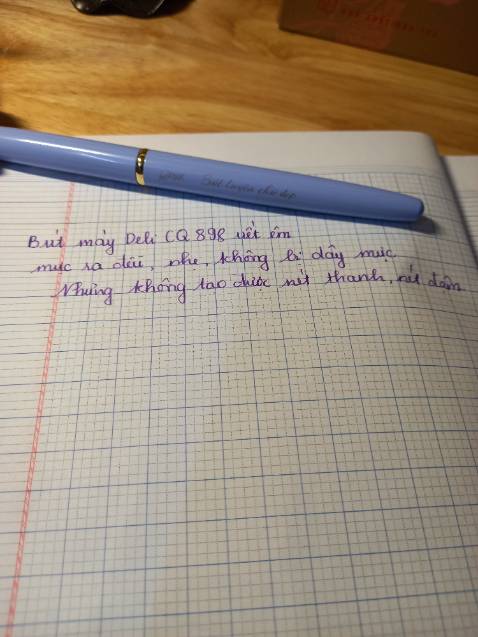 Bút luyện chữ đẹp
Bút máy Deli CQ 898 viết êm
mực ra đều, nhẹ, không bị dây mực
Nhưng không tạo được nét thanh, nét đậm